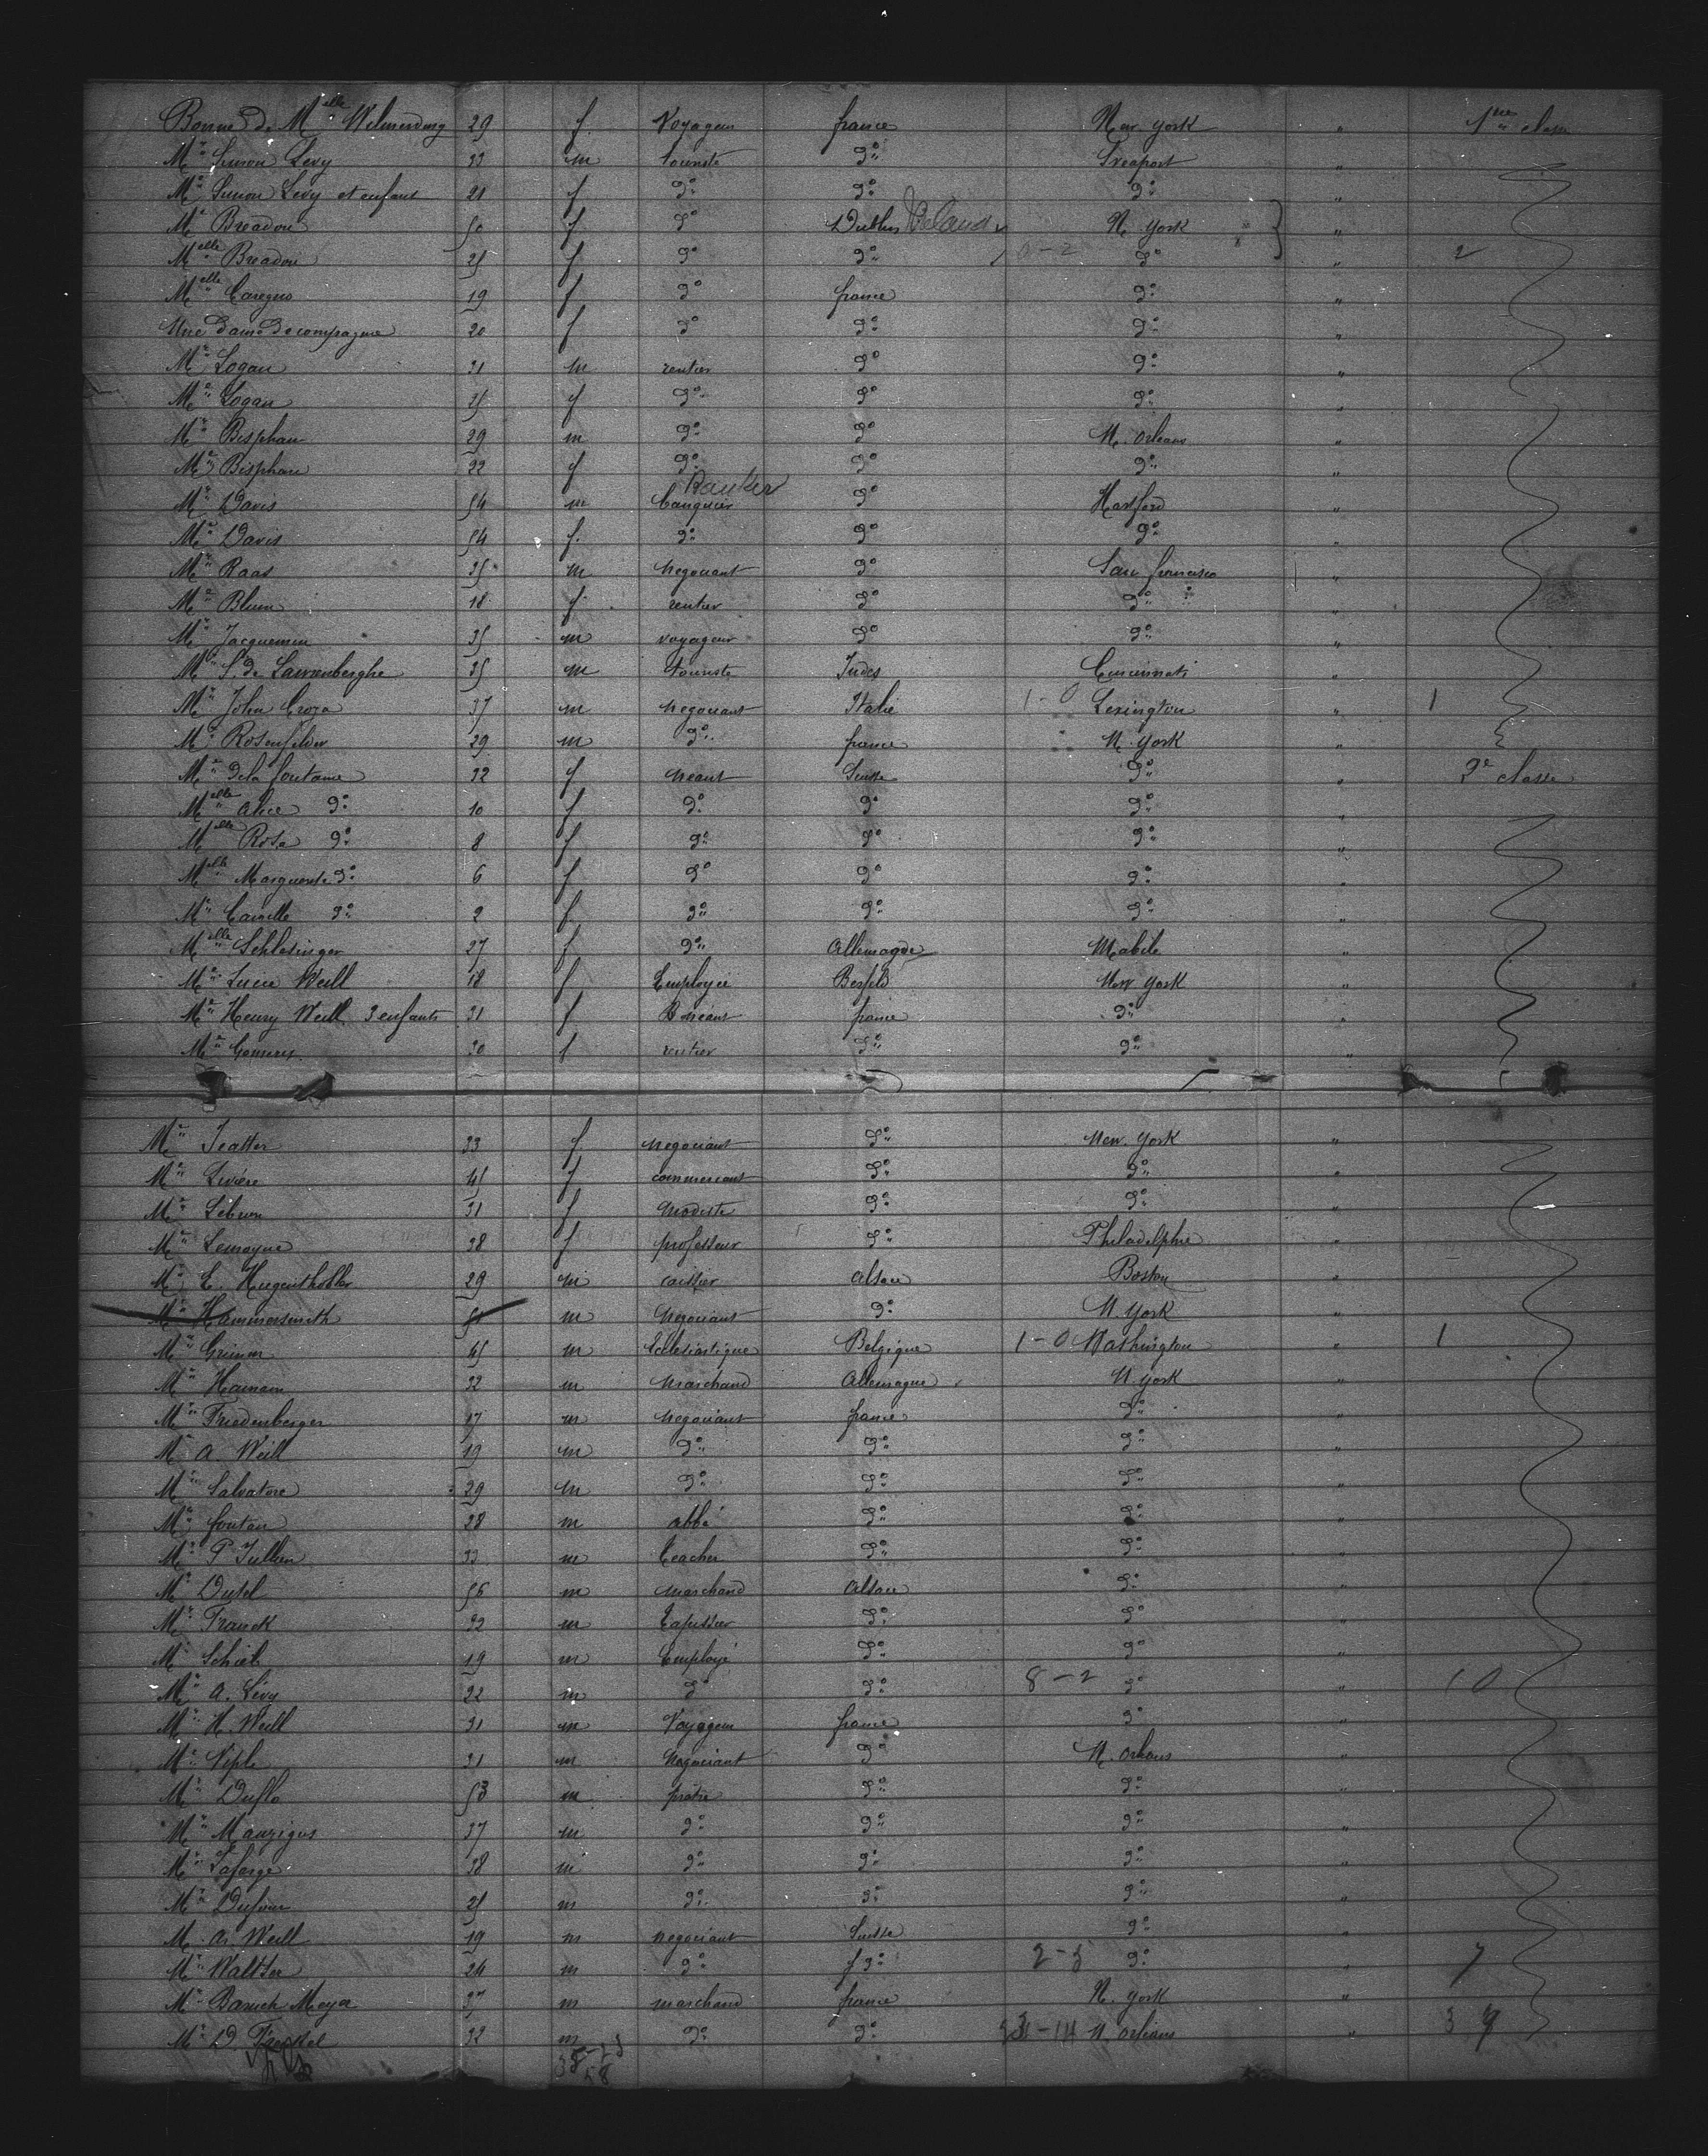 Bonne de Melle Wilmerding 29 f Voyageur france New York " 1ère classe
Mr Simon Levy 33 m touriste do Sreaport "
Me Simon Levy et enfant 21 f do do do "
Me Breadon 50 f do Dublin Ireland N. York "
Melle Breadon 25 f do do 0-2 do " 2
Melle Caregno 19 f do france do "
Une dame de compagnie 20 f do do do "
Mr Logan 31 m rentier do do "
Me Logan 25 f do do do "
Mr Bispham 29 m do do N. Orleans "
Me Bispham 22 f do do do "
Banker
Mr Davis 54 m banquier do Hartford "
Me Davis 54 f do do do "
Mr Raas 35 m negociant do San francisco "
Me Blum 18 f rentier do do "
Mr Jacquemin 35 m voyageur do do "
Mr S. de 35 m touriste Indes Cincinnati "
Mr John Croza 37 m negociant Italie 1-0 Lexington " 1
Mr Rosenfelder 29 m do france N. York "
Me de la fontaine 32 f neant Suisse do " 2e classe
Melle alice do 10 f do do do "
Melle Rose do 8 f do do do "
Melle Marguerite do 6 f do do do "
Me Camille do 2 f do do do "
Melle Schlesinger 27 f do Allemagne Mobile "
Me Lucie Weill 18 f Employée New York "
Me Henry Weill 3 enfants 31 f neant france do "
Me 30 f rentier do do "
Me 33 f negociant do New York "
Me Livière 45 f commercant do do "
Me Lebrun 31 f modiste do do "
Me Lemoyne 38 f professeur do Philadelphie "
Mr E. Hugenthobler 29 m caissier alsace Boston "
Mr Hammersmith m negociant do N. York "
Mr Grimm 45 m Eclesiastique Belgique 1-0 Washington " 1
Mr Hamann 32 m marchand Allemagne N York "
Mr Friedenberger 17 m negociant france do "
Mr A. Weill 19 m do do do "
Mr Salvatore 29 m do do do "
Mr fontan 28 m abbé do do "
Mr P Jullien 33 m teacher do do "
Mr Dutel 56 m marchand alsace do "
Mr Franck 32 m tapissier do do "
Mr 19 m Employé do do "
Mr A. Lévy 22 m do do 8-2 do " 10
Mr H. Weill 31 m Voyageur france do "
Mr 31 m negociant do N. Orleans "
Mr Duflo 53 m prêtre do do "
Mr Mauzigos 37 m do do do "
Mr Laforge 38 m do do do "
Mr Dufour 25 m do do do "
Mr A. Weill 19 m negociant Suisse do "
Mr Walther 24 m do do 2-5 do " 7
Mr Baruch Meyer 37 m marchand france N. York "
Mr D 32 m do do N Orleans "
58